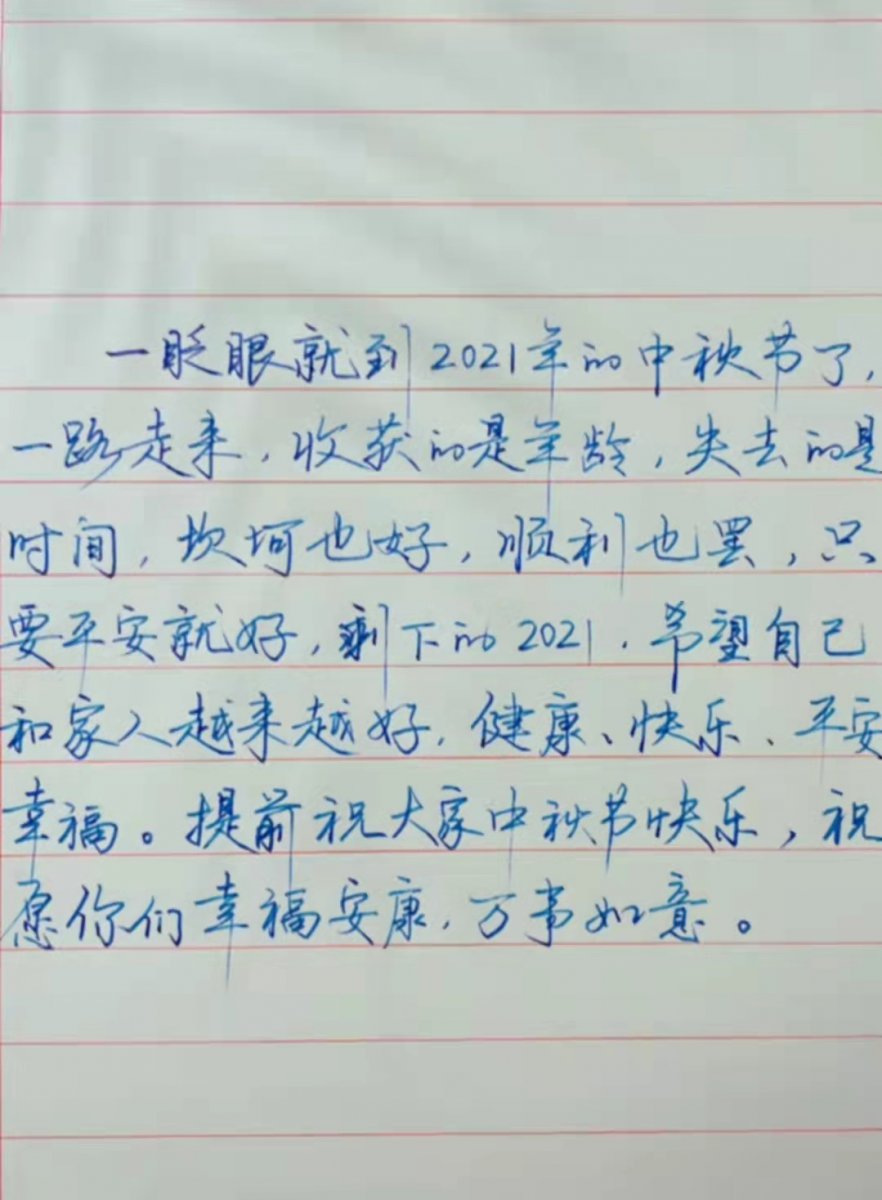 一眨眼就到2021年的中秋节了,
一路走来,收获的是年龄,失去的是
时间,坎坷也好,顺利也罢,只
要平安就好,剩下的2021,希望自己
和家人越来越好,健康、快乐、平安
幸福。提前祝大家中秋节快乐,祝
愿你们幸福安康,万事如意。